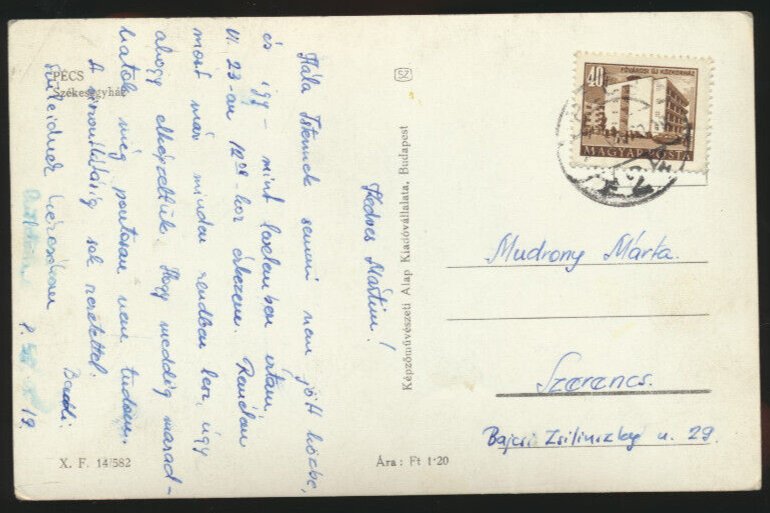 PÉCS
Székesegyház
Kedves Mártim!
Hála Istennek semmi nem jött közbe,
és így - mint levelemben írtam,
VI. 23-án 12⁰⁸-kor érkezem. Remélem
most már minden rendben lesz, úgy
ahogy elképzeltük. Hogy meddig marad-
hatok még pontosan nem tudom.
A viszontlátásig sok szeretettel.
Bandi.
19.
X. F. 14/582
SZ
Képzőművészeti Alap Kiadóvállalata, Budapest
Ára: Ft 1·20
40
FŐVÁROSI ÚJ KÖZKÓRHÁZ
MAGYAR POSTA
Mudrony Márta.
Szerencs.
Bajcsi Zsilinszky u. 29.